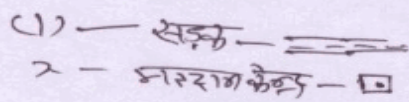 (1) — सड़क —
2 — मतदान केन्द्र —